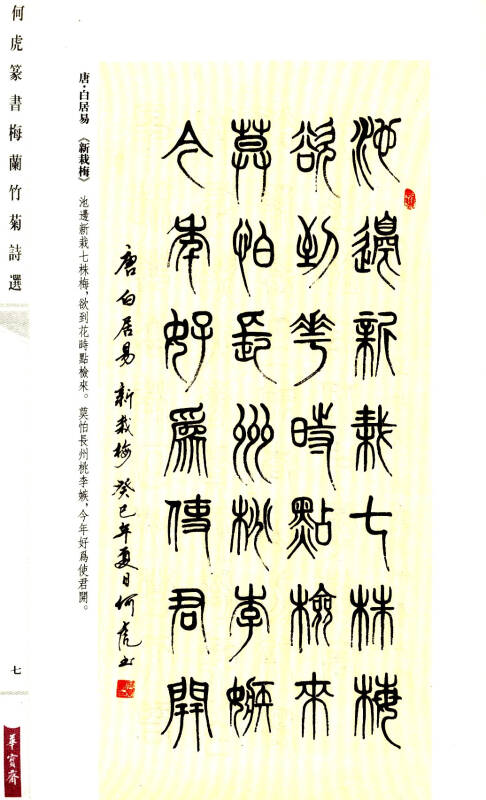 何虎篆書梅蘭竹菊詩選
唐·白居易《新栽梅》 池邊新栽七株梅，欲到花時點檢來。莫怕長州桃李嫉，今年好爲使君開。
池邊新栽七株梅
欲到花時點檢來
莫怕長州桃李嫉
今年好爲使君開
唐白居易新栽梅癸巳年夏日何虎书
七
華寶齋